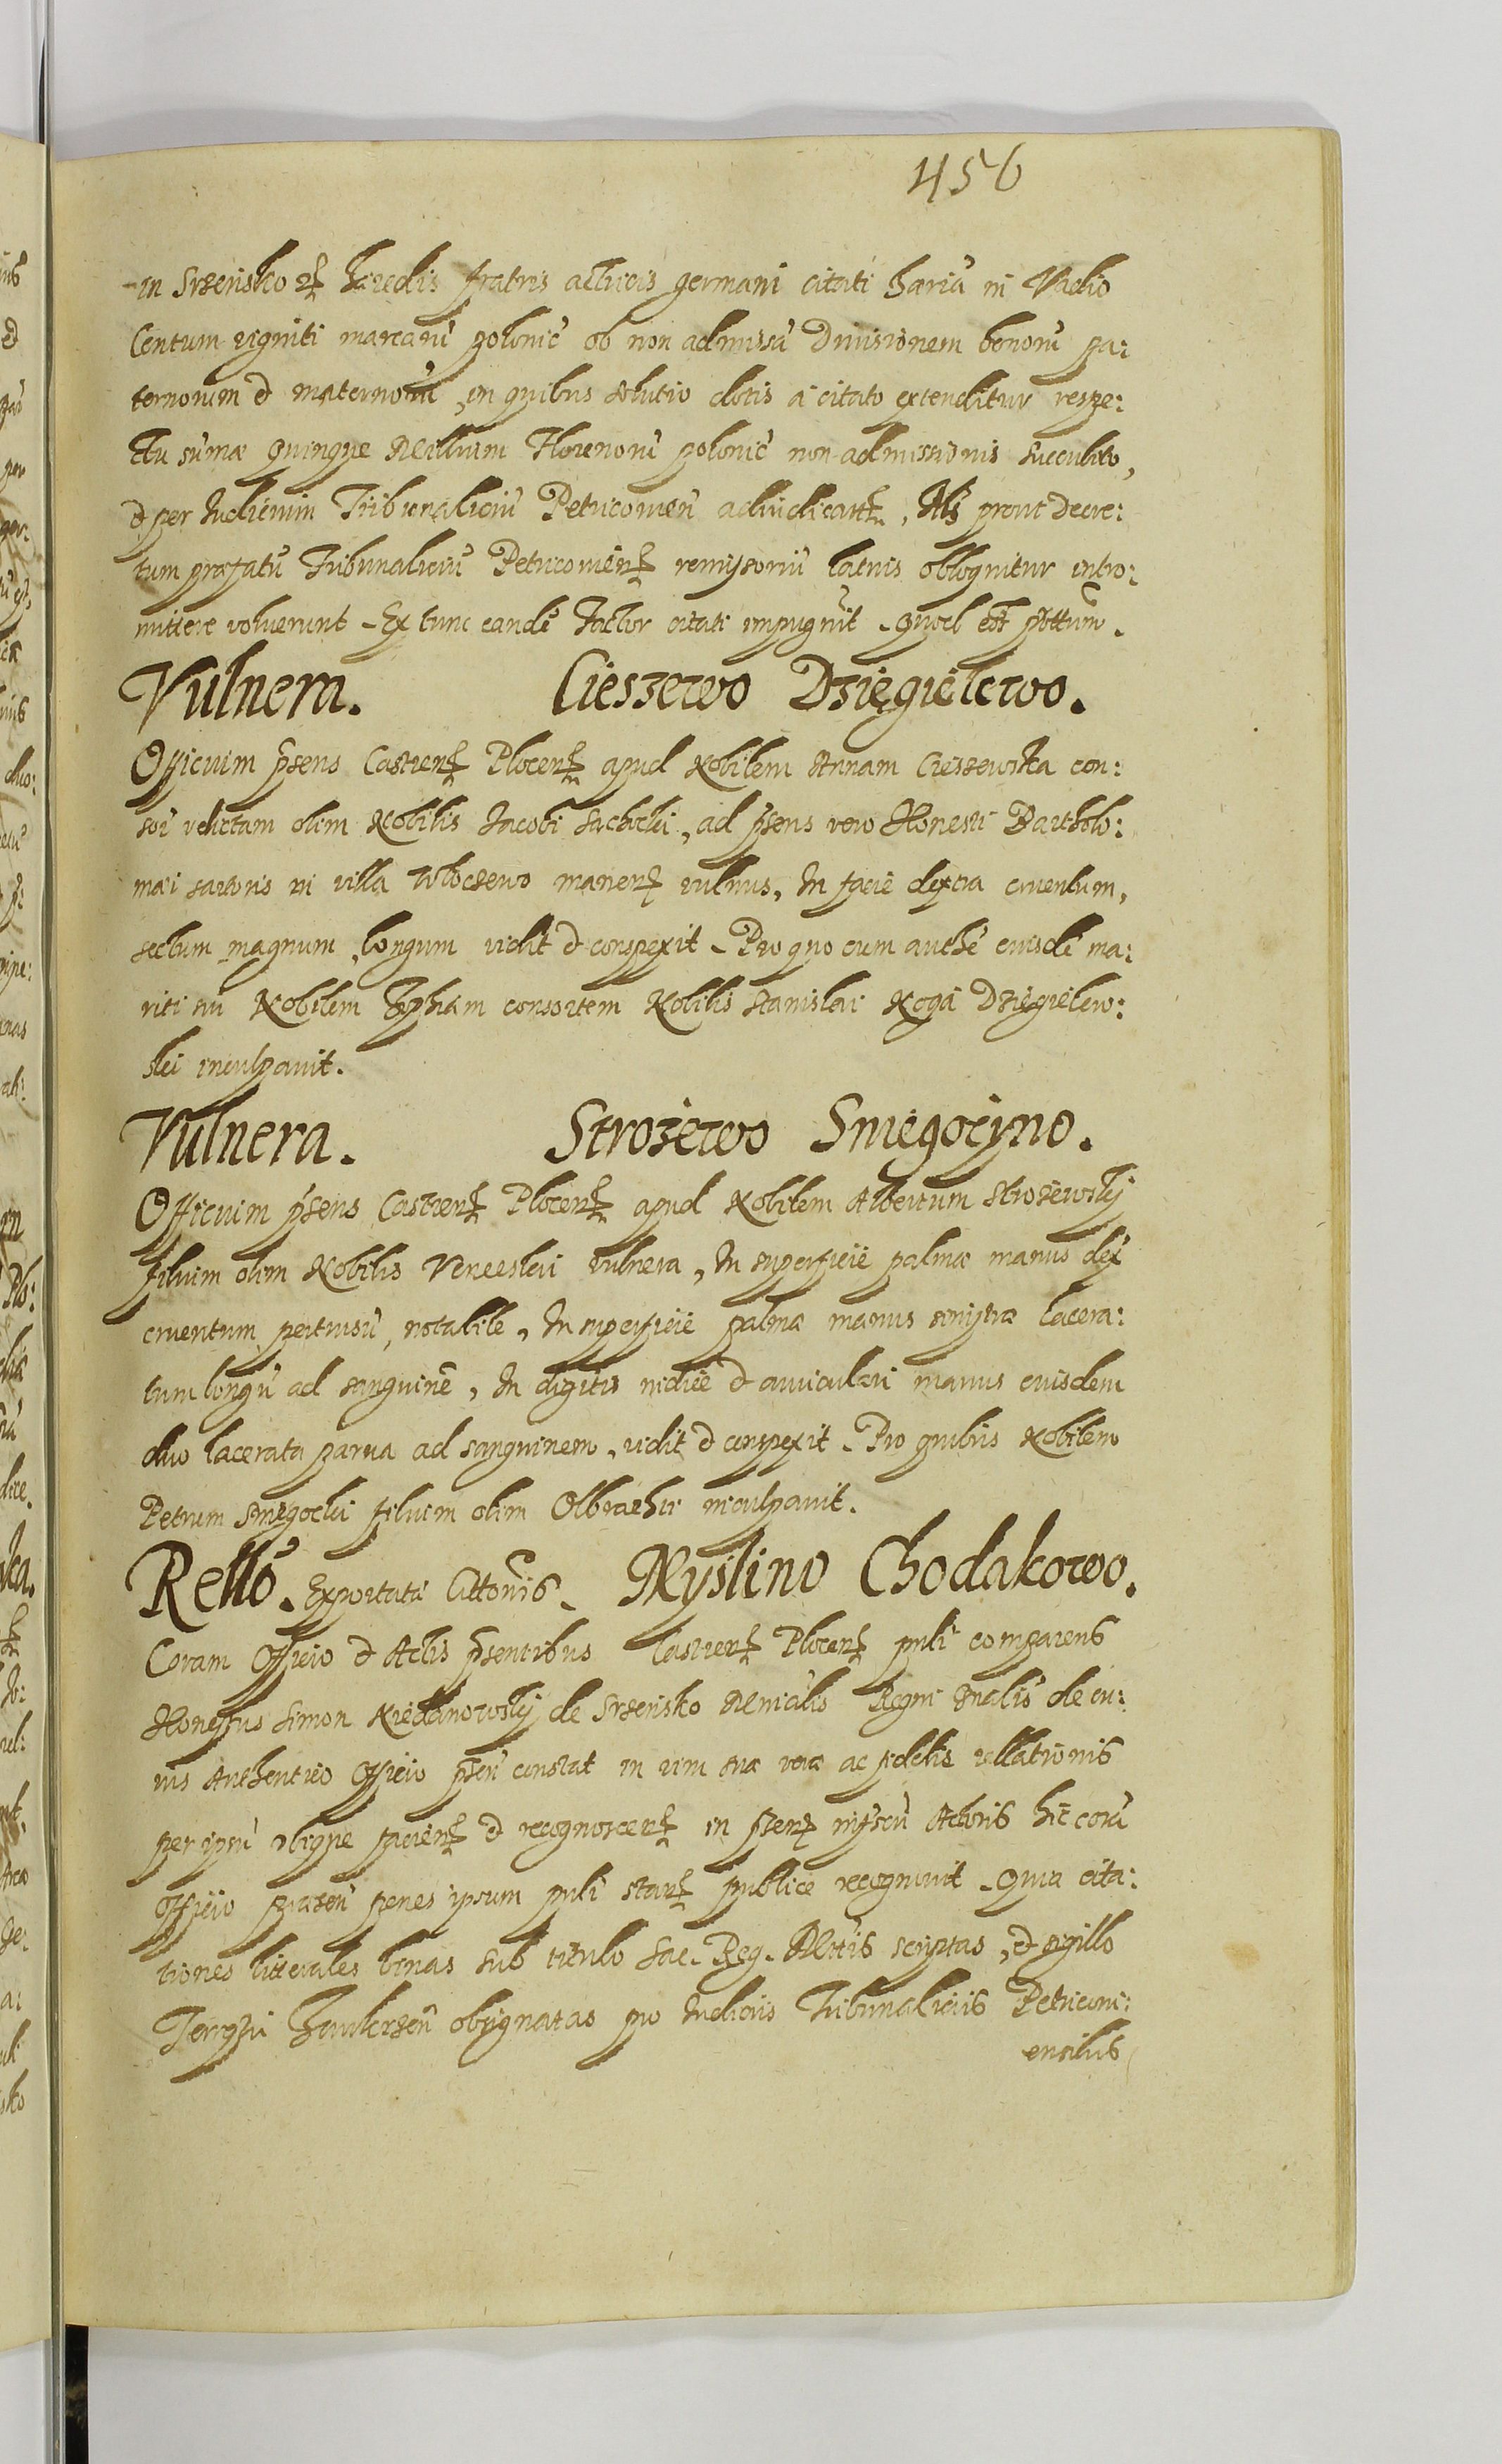 456
in Srzensko et haeredis fratris actricis germani citati hariu in Vadio
Centum viginti marcarū polonic̄ ob non admissā Divisionem bonorū pa:
ternorum & maternorū, in quibus solutio dotis a citato extenditur respe:
ctu sumæ quinque Millium Florenorū polonic̄ non admissionis succubito,
& per Iudicium Tribunaliciū Petricovien̄ adiudicatt, Als prout Decre:
tum præfatū Tribunaliciū Petricovien̄ remissoriū latius obloquitur intro:
mittere voluerunt. Ex tunc eandē Factor citati impugnit. quod est pttum.
Vulnera. Cieszewo Dzięgielewo.
Officium p̄sens Castren̄ Plocen̄ apud Nobilem Annam Cieszewska con:
sor̄ relictam olim Nobilis Jacobi Suchcki, ad p̄sens vero Honesti Bartholo:
mæi sartoris in villa Wloczewo manen̄ vulnus, In facie dextra cruentum,
sectum magnum, longum vidit & conspexit. Pro quo cum authē eiusdē ma:
riti sui Nobilem Zophiam consortem Nobilis Stanislai Noga Dzięgielew:
ski inculpavit.
Vulnera. Strozewo Smiegocyno.
Officium p̄sens Castren̄ Plocen̄ apud Nobilem Albertum Strozewsky
filium olim Nobilis Venceslai vulnera, In superficie palmæ manus dex
cruentum pertusū, notabile, In superficie palmæ manus sinistræ lacera:
tum longū ad sanguinē, In digitis indice & auriculari manus eiusdem
duo lacerata parva ad sanguinem, vidit & conspexit. Pro quibus Nobilem
Petrum Smiegocki filium olim Olbrachti inculpavit.
Rello. Exportatæ Cittōnis. Myslino Chodakowo.
Coram Officio & Actis p̄sentibus Castren̄ Plocen̄ p̄nli comparens
Honestus Simon Niedanowsky de Srzensko Ministrālis Regni Gnalis de cu:
ius Authentico Officio p̄sen̄ constat in vim suæ veræ ac fidelis rellationis
per ipsū ubique facien̄ & recognoscen̄ in p̄sen̄ infrscu Actoris hic corā
Officio præsen̄ penes ipsum p̄nli stan̄ publice recognovit. Quia cita:
tiones litterales binas sub titulo Sac. Reg. Mttis scriptas, & sigillo
Terrstri Zawkrzen̄ obsignatas pro Iudiciis Tribunaliciis Petricovi:
ensibus